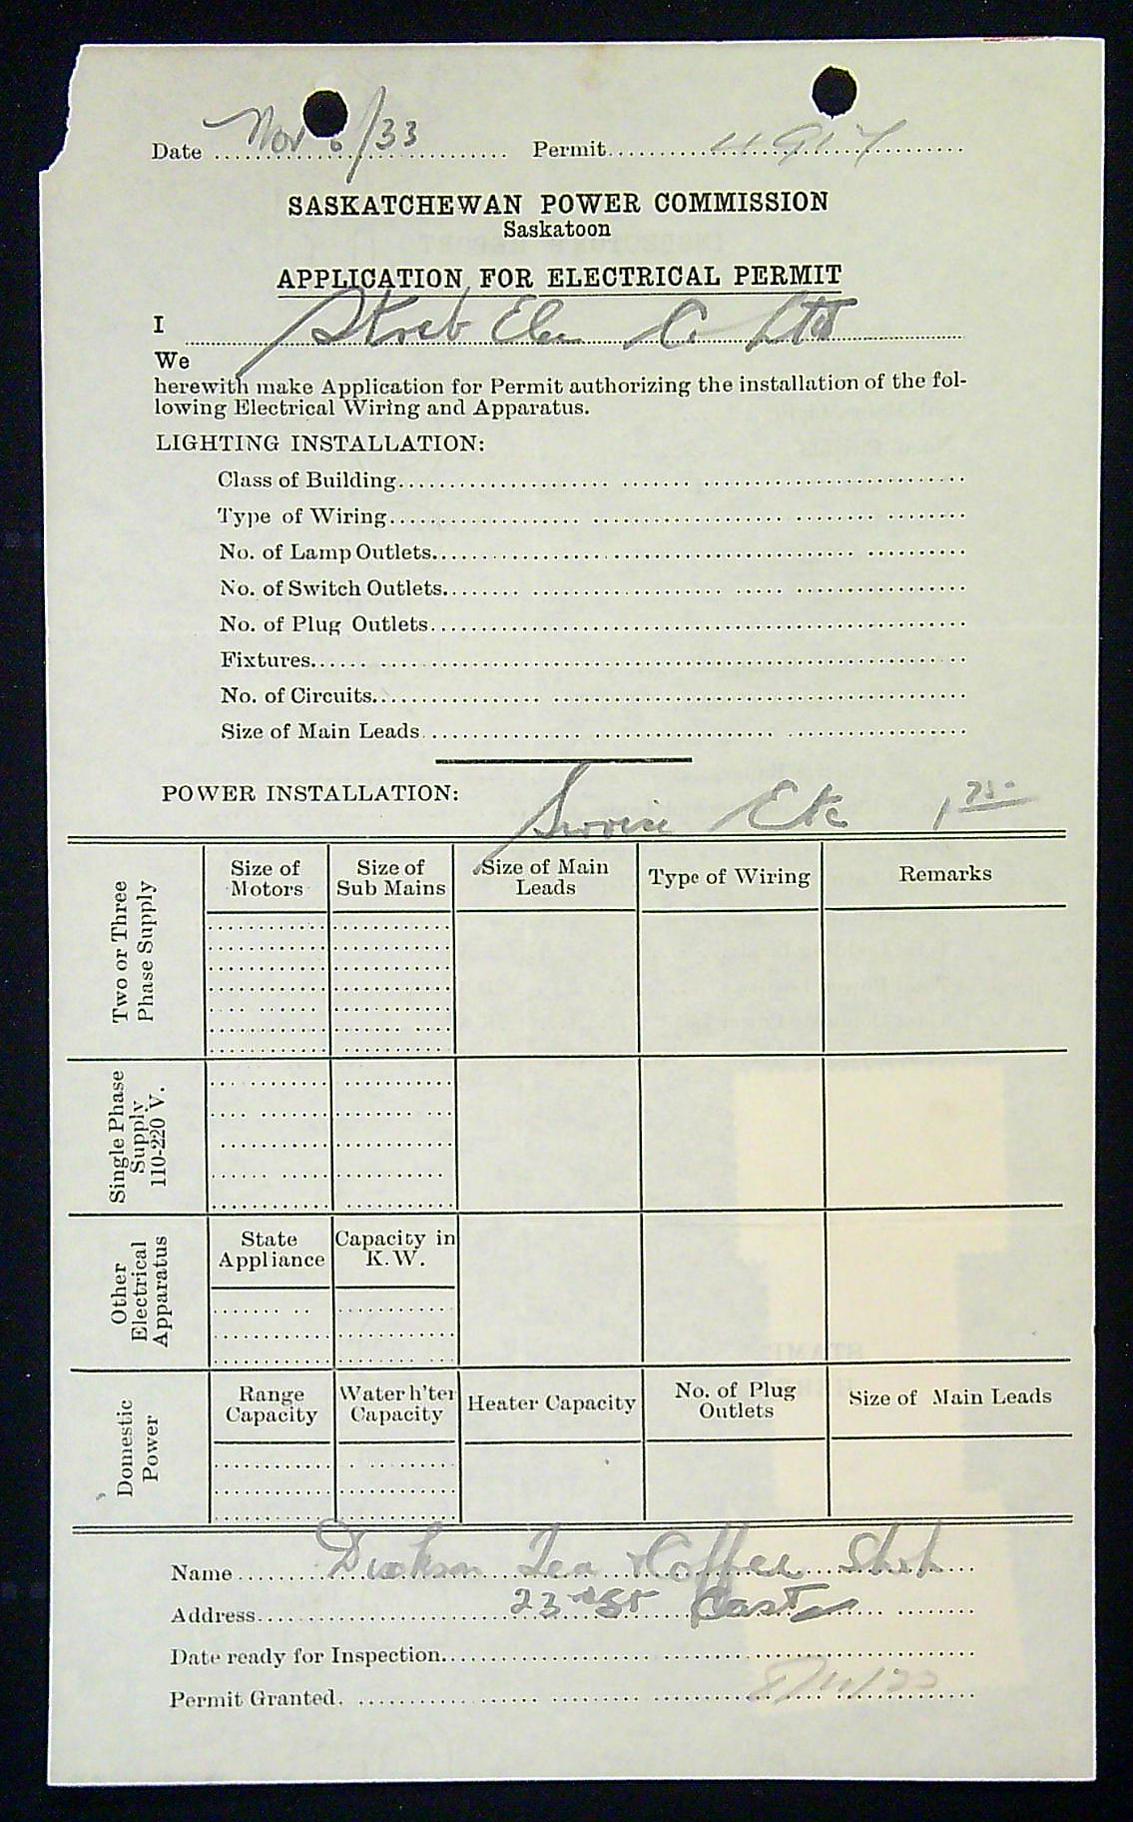 Date Nov 6/33 Permit 4917
SASKATCHEWAN POWER COMMISSION
Saskatoon
APPLICATION FOR ELECTRICAL PERMIT
I
We Streb Elec Co Ltd
herewith make Application for Permit authorizing the installation of the fol-
lowing Electrical Wiring and Apparatus.
LIGHTING INSTALLATION:
Class of Building
Type of Wiring
No. of Lamp Outlets
No. of Switch Outlets
No. of Plug Outlets
Fixtures
No. of Circuits
Size of Main Leads
POWER INSTALLATION: Service Etc 1 75
Two or Three
Phase Supply
Size of
Motors
Size of
Sub Mains
Size of Main
Leads
Type of Wiring
Remarks
Single Phase
Supply
110-220 V.
Other
Electrical
Apparatus
State
Appliance
Capacity in
K.W.
Domestic
Power
Range
Capacity
Water h'ter
Capacity
Heater Capacity
No. of Plug
Outlets
Size of Main Leads
Name Dickson Tea & Coffee Shop
Address 23rd St East
Date ready for Inspection
Permit Granted